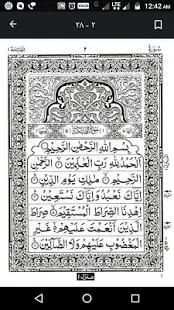 12:42 AM
٢
بِسْمِ اللهِ الرَّحْمٰنِ الرَّحِيْمِ
اَلْحَمْدُ لِلّٰهِ رَبِّ الْعٰلَمِيْنَ الرَّحْمٰنِ
الرَّحِيْمِ مٰلِكِ يَوْمِ الدِّيْنِ
اِيَّاكَ نَعْبُدُ وَاِيَّاكَ نَسْتَعِيْنُ
اِهْدِنَا الصِّرَاطَ الْمُسْتَقِيْمَ صِرَاطَ
الَّذِيْنَ اَنْعَمْتَ عَلَيْهِمْ غَيْرِ
الْمَغْضُوْبِ عَلَيْهِمْ وَلَا الضَّآلِّيْنَ